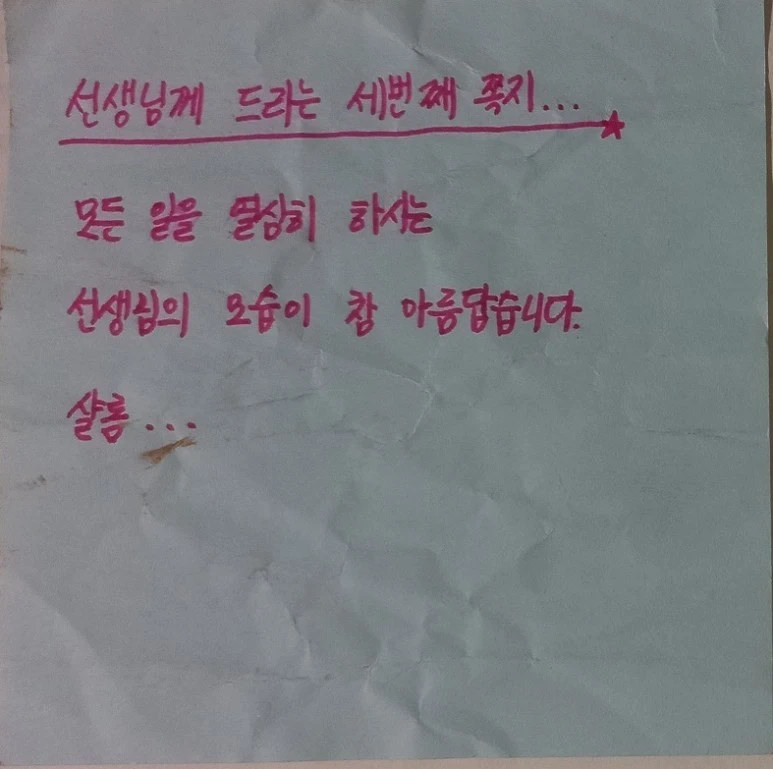 선생님께 드리는 세번째 쪽지...
모든 일을 열심히 하시는
선생님의 모습이 참 아름답습니다.
샬롬...